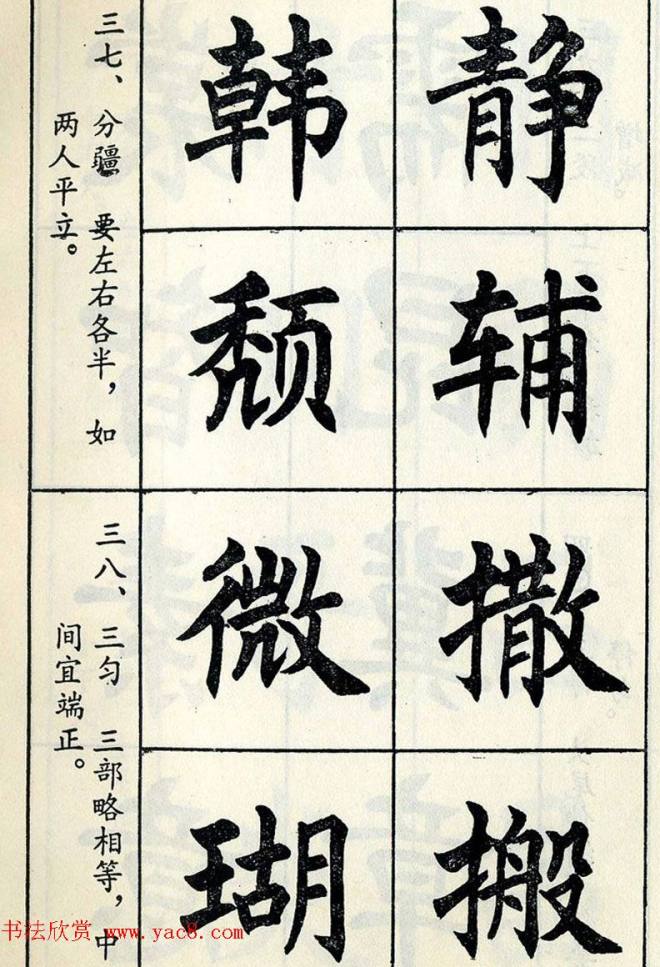 三七、分疆 要左右各半，如
两人平立。
韩 静
颓 辅
三八、三匀 三部略相等，中
间宜端正。
微 撒
瑚 搬
书法欣赏 www.yac8.com